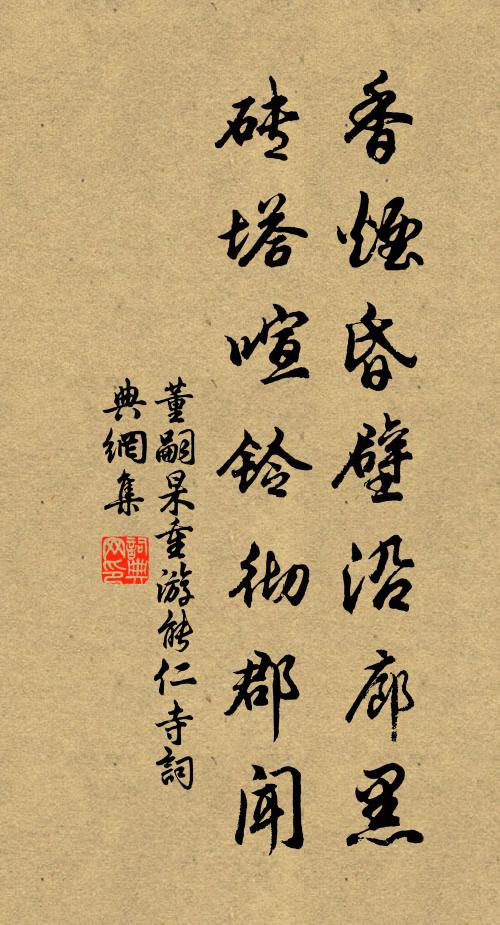 香煙昏壁沿廊黑
砖塔喧鈴彻郡闻
董嗣杲重游能仁寺詞
典網集
詞典
网印